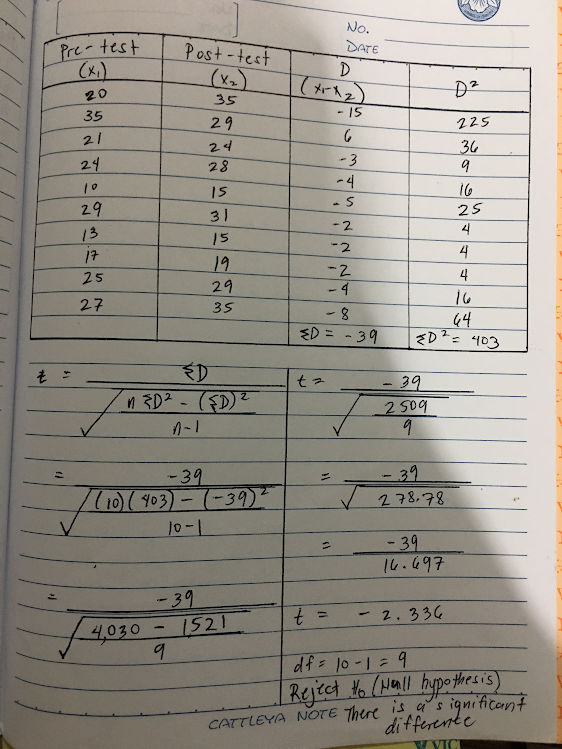 No.
DATE
Pre-test Post-test D D²
(x₁) (x₂) (x₁-x₂)
20 35 -15 225
35 29 6 36
21 24 -3 9
24 28 -4 16
10 15 -5 25
29 31 -2 4
13 15 -2 4
17 19 -2 4
25 29 -4 16
27 35 -8 64
ΣD = -39 ΣD² = 403
t = ΣD
√ n ΣD² - (ΣD)²
n-1
= -39
√ (10)(403) - (-39)²
10-1
= -39
√ 4,030 - 1521
9
t = -39
√ 2509
9
= -39
√ 278.78
= -39
16.697
t = -2.336
df = 10-1 = 9
Reject H₀ (Null hypothesis)
There is a significant
difference
CATTLEYA NOTE